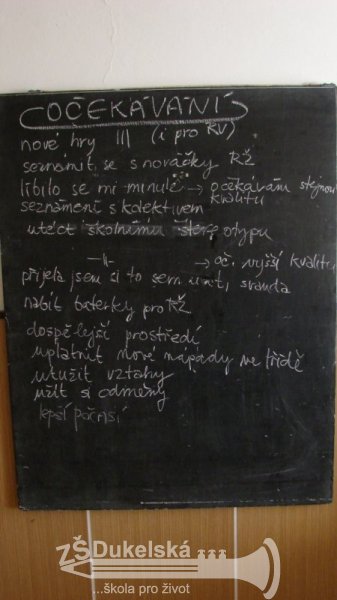 OČEKÁVÁNÍ
nové hry III (i pro ŘV)
seznámit se s nováčky RŽ
líbilo se mi minule → očekávám stejnou kvalitu
seznámení s kolektivem
utéct školnímu stereotypu
—||— → oč. vyšší kvalitu
přijela jsem si to sem užít, sranda
nabít baterky pro RŽ
dospělejší prostředí
uplatnit nové nápady ve třídě
utužit vztahy
užít si odměny
lepší počasí
ZŠDukelská
...škola pro život